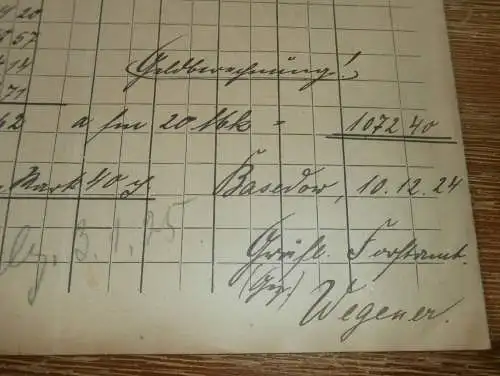 4 20
57
14
71
(Geldberechnung!)
62 a fm 20 Mk = 1072 40
Mark 40 ₰
Basedow, 10.12.24
bez. 3.1.25
Gräfl. Forstamt.
(Gez)
Wegener.